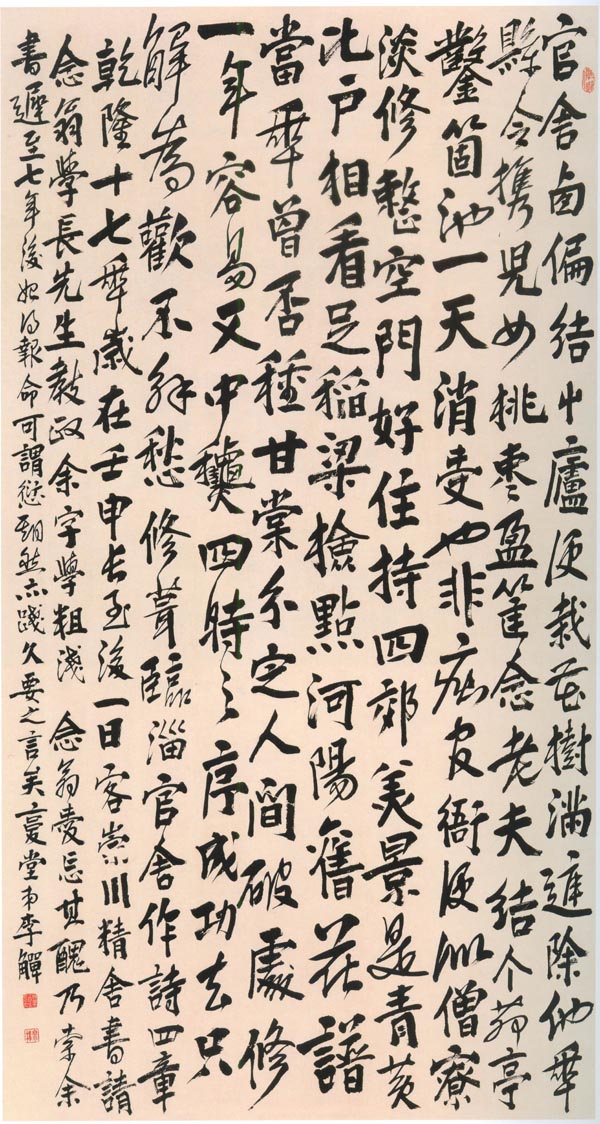 官舍卤偏結屮廬便栽花樹滿庭除他年
縣令携兒女桃棗盈筐念老夫結个茆亭
鑿箇池一天消受也非痴官衙便似僧寮
淡修整空門好住持四郊美景是青黃
比户相看足稻粱撿點河陽舊花譜
當年曾否種甘棠分定人間破處修
一年容易又中龝四時之序成功去只
解為歡不解愁修葺臨淄官舍作詩四章
乾隆十七年歲在壬申長至後一日客崇川精舍書請
念翁學長先生教政余字學粗淺 念翁愛忘其醜乃索余
書遲至七年後始得報命可謂愆期然亦踐久要之言矣 亱堂弟李觶